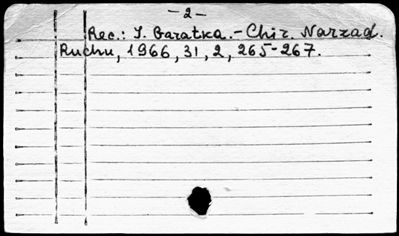 - 2 -
Rec.: J. Garatka. - Chir. Narząd.
Ruchu, 1966, 31, 2, 265-267.